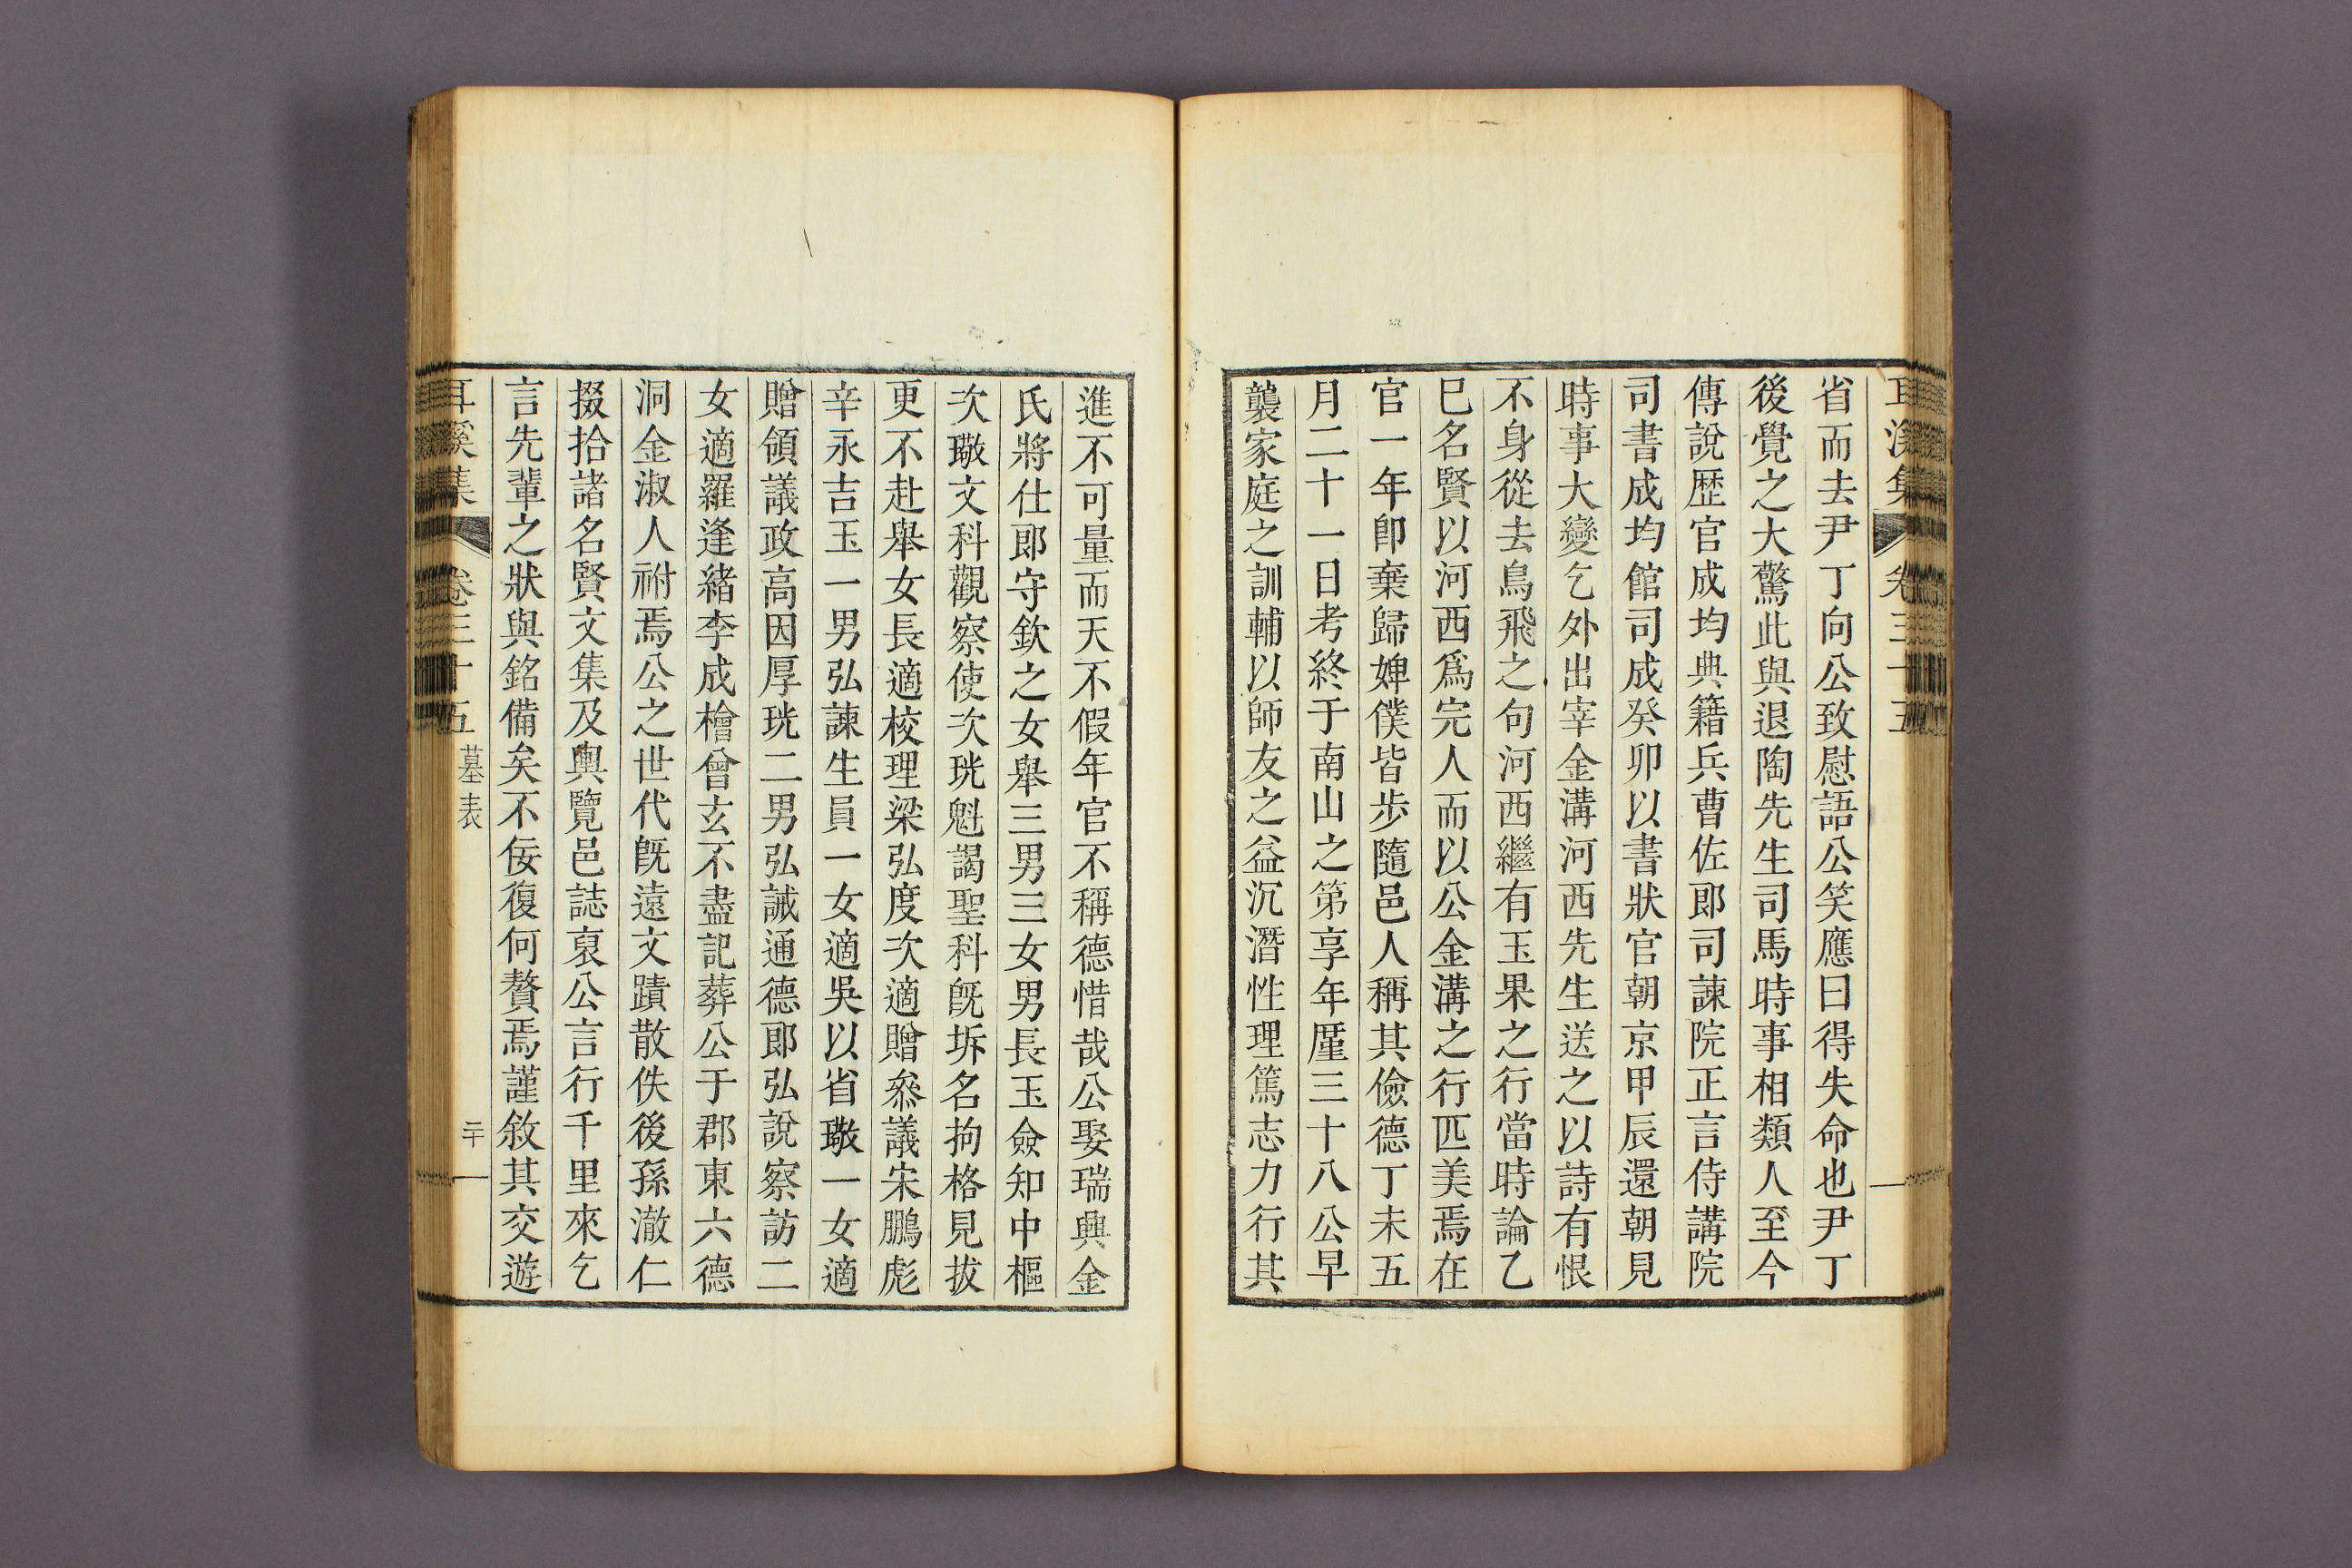 耳溪集 卷三十五
省而去尹丁向公致慰語公笑應曰得失命也尹丁
後覺之大驚此與退陶先生司馬時事相類人至今
傳說歷官成均典籍兵曹佐郎司諫院正言侍講院
司書成均館司成癸卯以書狀官朝京甲辰還朝見
時事大變乞外出宰金溝河西先生送之以詩有恨
不身從去鳥飛之句河西繼有玉果之行當時論乙
巳名賢以河西爲完人而以公金溝之行匹美焉在
官一年卽棄歸婢僕皆步隨邑人稱其儉德丁未五
月二十一日考終于南山之第享年厪三十八公早
襲家庭之訓輔以師友之益沉潛性理篤志力行其
進不可量而天不假年官不稱德惜哉公娶瑞興金
氏將仕郎守欽之女舉三男三女男長玉僉知中樞
次璥文科觀察使次珖魁謁聖科旣坼名拘格見拔
更不赴舉女長適校理梁弘度次適贈叅議宋鵬彪
辛永吉玉一男弘諫生員一女適吳以省璥一女適
贈領議政高因厚珖二男弘誡通德郎弘說察訪二
女適羅逢緖李成檜曾玄不盡記葬公于郡東六德
洞金淑人祔焉公之世代旣遠文蹟散佚後孫澈仁
掇拾諸名賢文集及輿覽邑誌裒公言行千里來乞
言先輩之狀與銘備矣不佞復何贅焉謹敘其交遊
耳溪集 卷三十五 墓表 二十